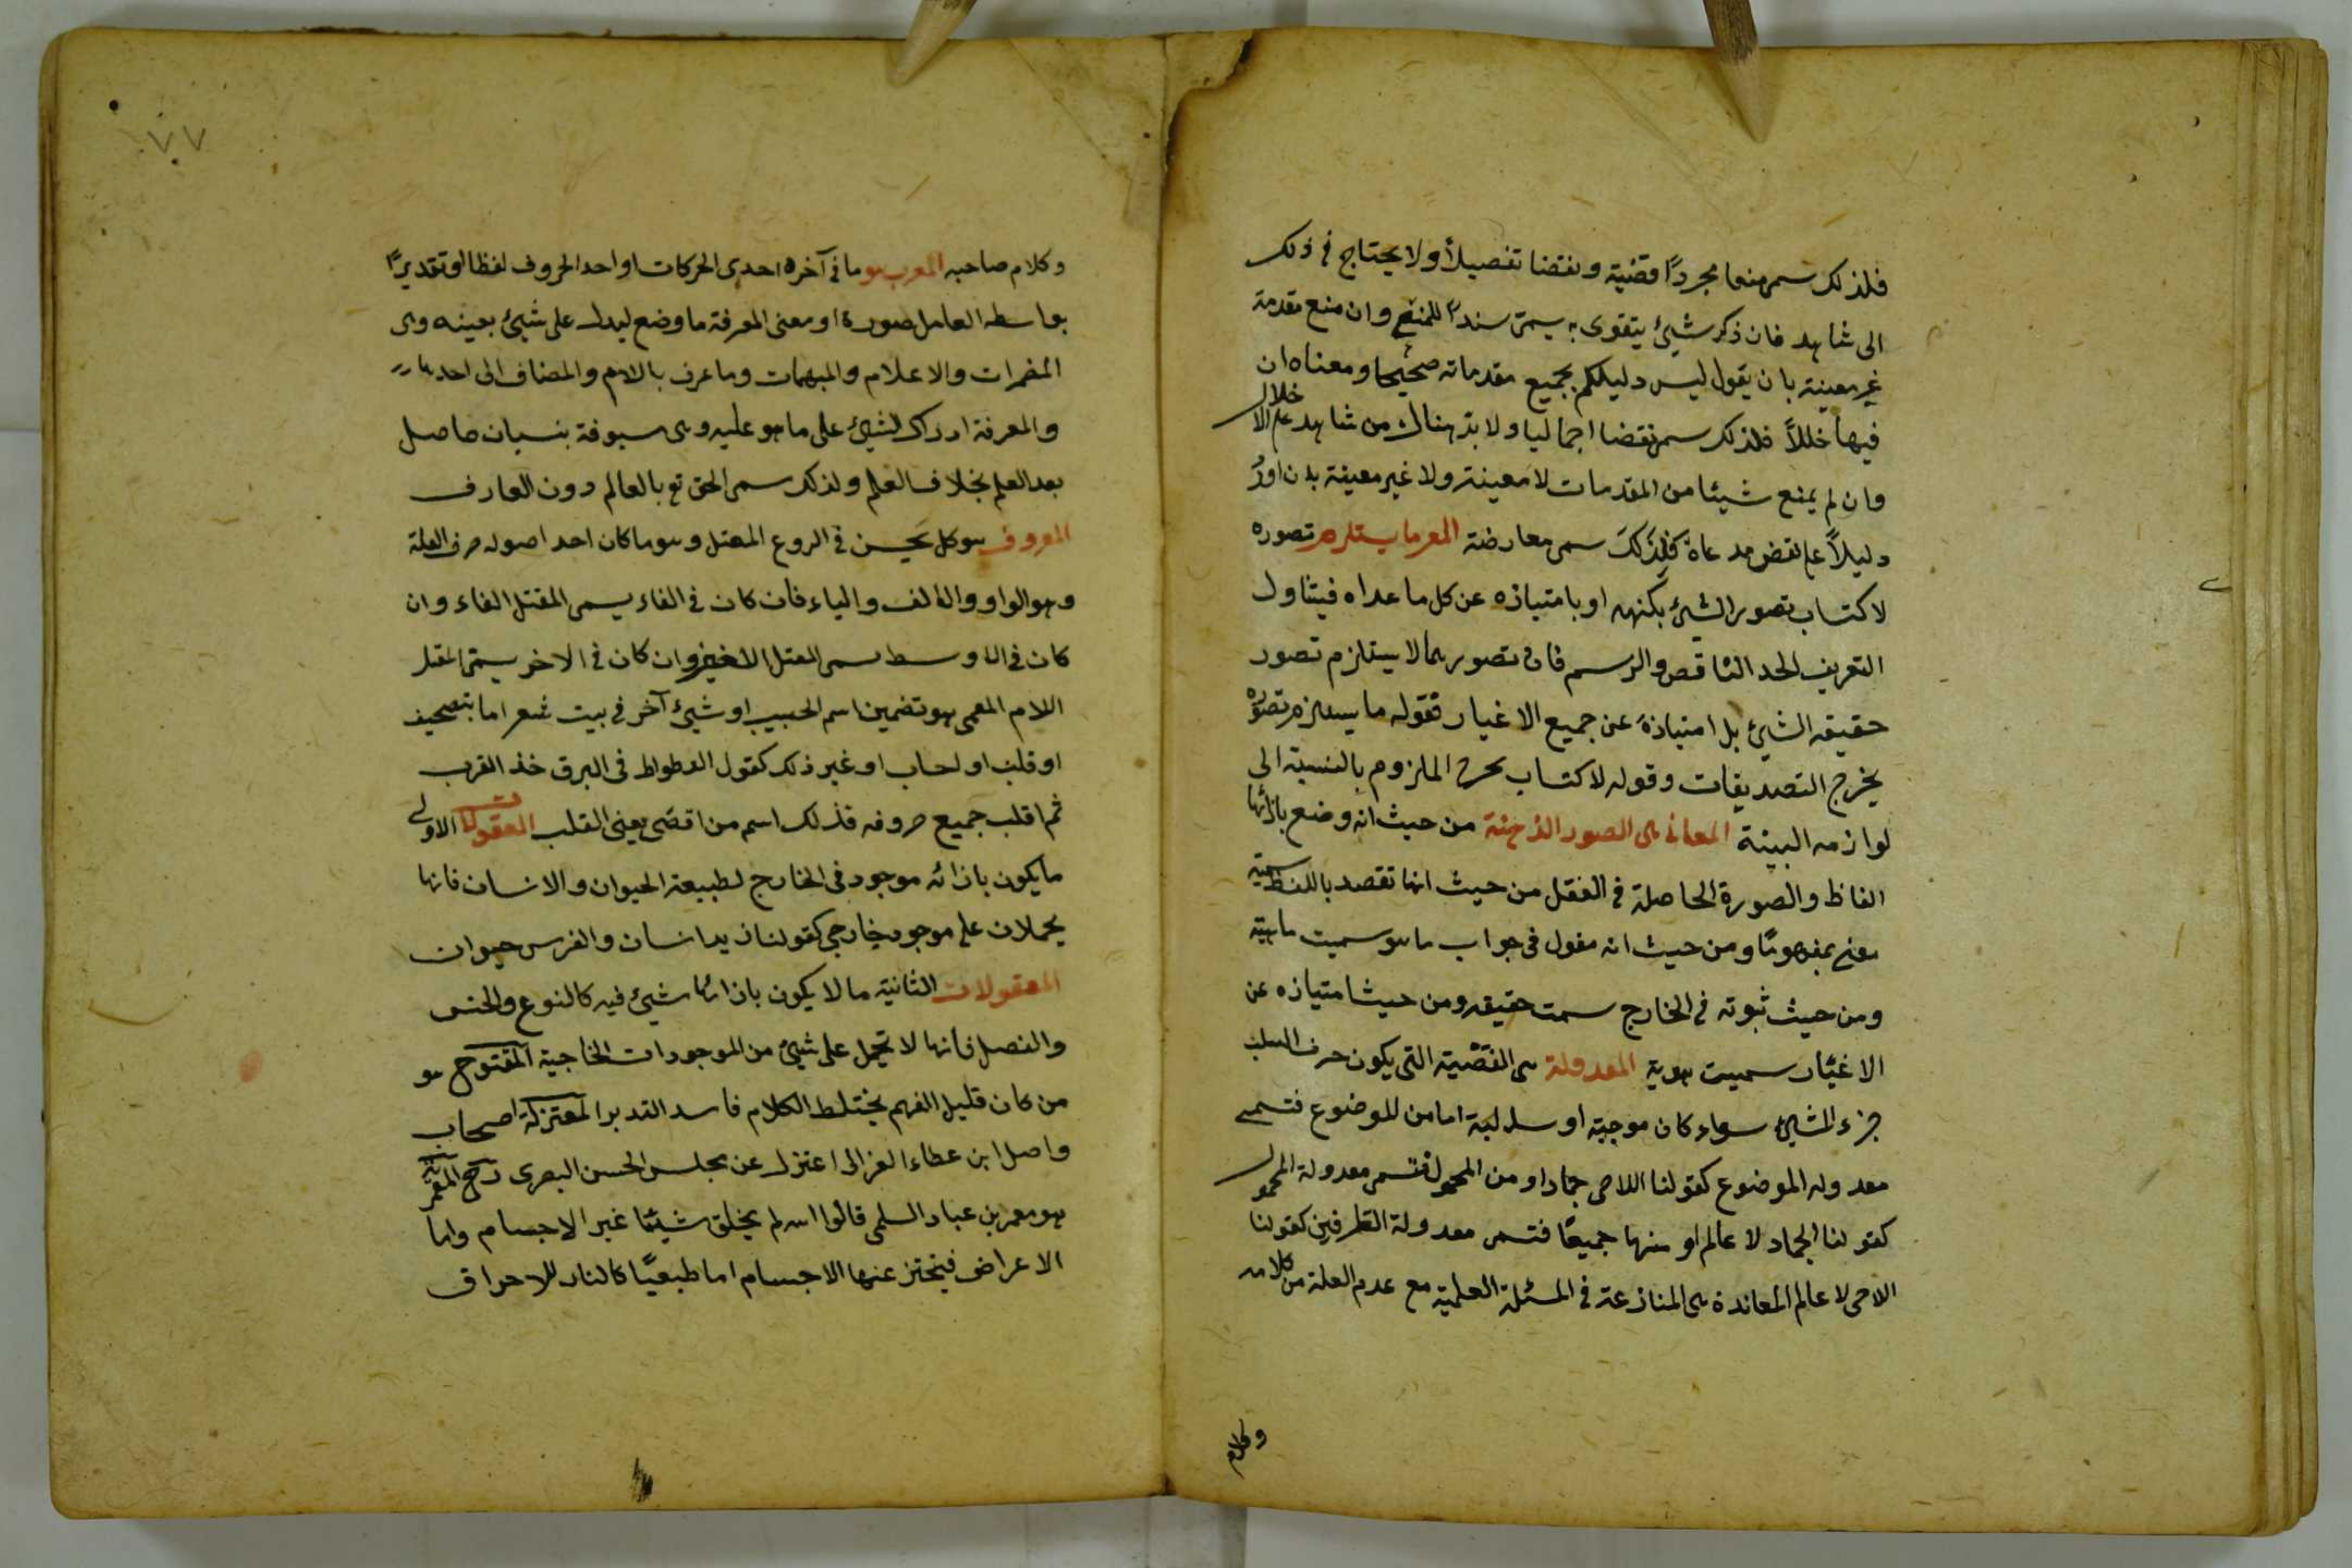 فلذلك سمى منعا مجردًا قضية ونقضا تفصيلاً ولا يحتاج فى ذلك
الى شاهد فان ذكر شيئ يتقوى به يسمّى سندًا للمنع وان منع مقدمة
غير معينة بان يقول ليس دليلكم بجميع مقدماته صحيحا ومعناه ان
فيها خللاً فلذلك سمى نقضا اجماليا ولا بد هناك من شاهد على الاخلال
وان لم يمنع شيئا من المقدمات لا معينة ولا غير معينة بان اورد
دليلاً على نقض مدعاه فلِذَلكَ سمى معارضة المعرما يستلزم تصوره
لاكتساب تصور الشيئ بكنهه او بامتيازه عن كل ما عداه فيتناول
التعريف لحد الناقص والرسم فان تصورهما لا يستلزم تصور
حقيقه الشيئ بل امتيازهَ عن جميع الاغيار فقوله ما يستلزم تصوّره
يخرج التصديقات وقوله لاكتساب يخرج الملزوم بالنسبة الى
لوازمه البينة المعانى هى الصور الذهنة من حيث انه وضع بازائها
الفاظ والصورة الحاصلة فى العقل من حيث انها تقصد باللفظ سميت
معنى بمفهومًا ومن حيث انه مقول فى جواب ما هو سميت ماهية
ومن حيث ثبوته فى الخارج سمت حقيقه ومن حيث امتيازه عن
الاغيار سميت هوية المعدولة هى القضية التى يكون حرف السلب
جزء الشيئ سواء كان موجبة او سالبة اما من للموضوع فتسمى
معدوله الموضوع كقولنا اللاحى جماد او من المحمول فتسمى معدولة المحمول
كقولنا الجماد لا عالم او منهما جميعًا فتسمى معدولة الطرفين كقولنا
الاحى لا عالم المعاندة هى المنازعة فى المسئلة العلمية مع عدم العلمة من كلامه
وكلام
٧٧
وكلام صاحبه المعرب هو ما فى آخره احدى الحركات او احد الحروف لفظا او تقديرًا
بواسطه العامل صورة او معنى المعرفة ما وضع ليدل على شيئ بعينه وهى
المضمرات والاعلام والمبهمات وما عرف بالام والمضاف الى احدها
والمعرفة ادراك لشيئ على ما هو عليه وهى مسبوقة بنسيان حاصل
بعد العلم بخلاف العلم ولذلك سمى الحق تع بالعالم دون العارف
المعروف هو كل يحسن فى الروع المعتل وهو ما كان احد اصوله حرف العلة
وهو الواو والالف والياء فان كان فى الفاء يسمى المقتل الفاء وان
كان فى الاوسط سمى المعتل العين وان كان فى الاخر يسمّى المعتل
اللام المعمى هو تضمين اسم الحبيب او شيئ آخر فى بيت شعر اما بتصحيف
او قلب او لحساب او غير ذلك كقول الوطواط فى البرق خذ القرب
ثم اقلب جميع حروفه فذلك اسم من اقصى يعنى القلب المعقولات الاولى
ما يكون بازائه موجود فى الخارج لطبيعة الحيوان والانسان فانها
يحملان على موجود خارجى كقولنا زيد انسان والفرس حيوان
المعقولات الثانية ما لا يكون بازائها شيئ فيه كالنوع والجنس
والفصل فانها لا تحمل على شيئ من الموجودات الخاجية المفتوح هو
من كان قليل الفهم يختلط الكلام فاسد التدبر المعتزلة اصحاب
واصل ابن عطاء الغزالى اعتزل عن مجلس الحسن البصرى رح المعمرية
هو معمر بن عباد السلمى قالوا الله لم يخلق شيئًا غير الاجسام واما
الاعراض فيختز عنها الاجسام اما طبعيًا كالنار للاحراق